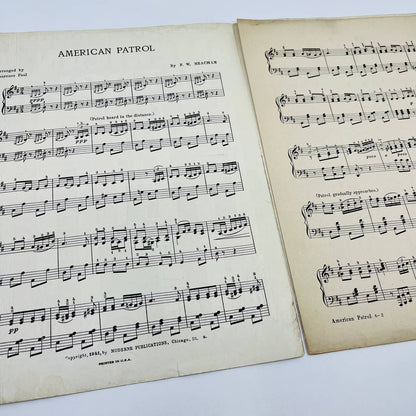 AMERICAN PATROL
Arranged by
By F. W. MEACHAM
ppp
(Patrol heard in the distance.)
ppp
pp
Copyright, 1942, by MODERNE PUBLICATIONS, Chicago, Ill.
PRINTED IN U.S.A.
poco
(Patrol gradually approaches.)
American Patrol 4-2